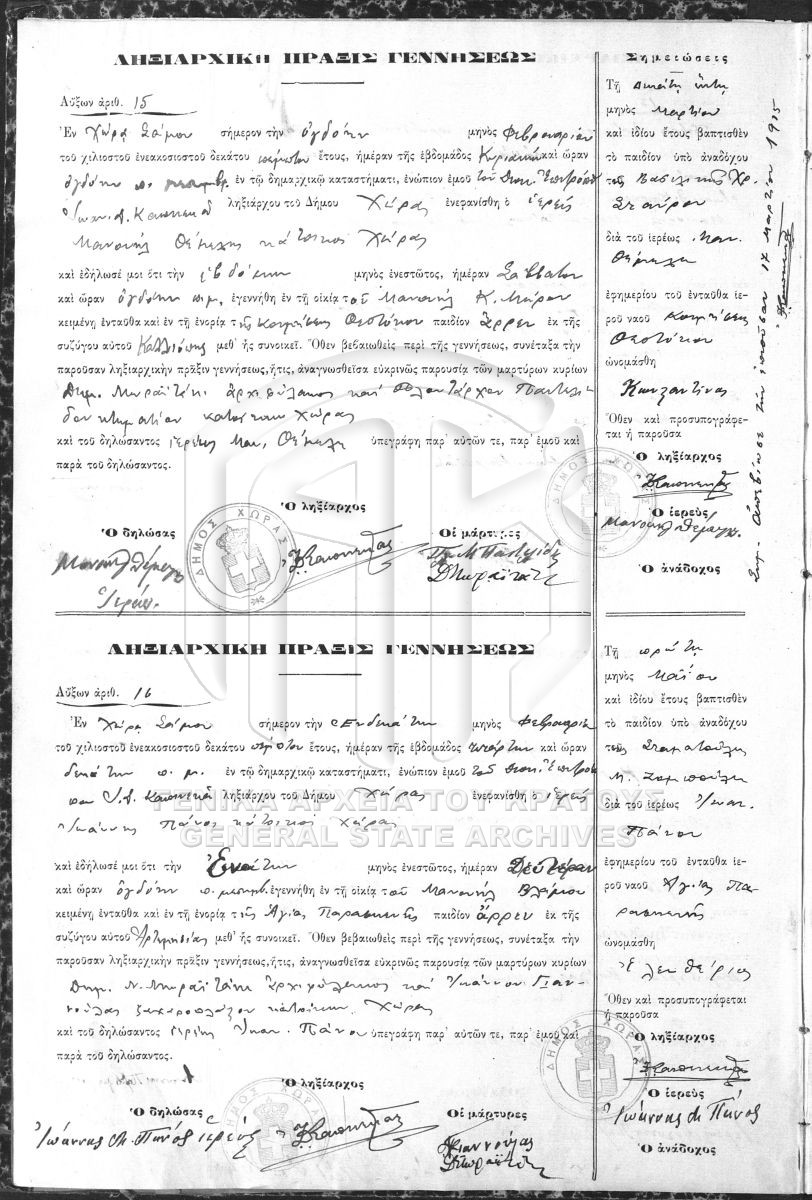 ΛΗΞΙΑΡΧΙΚΗ ΠΡΑΞΙΣ ΓΕΝΝΗΣΕΩΣ
Αὔξων ἀριθ. 15
Ἐν Χώρᾳ Σάμου σήμερον τὴν ὀγδόην μηνὸς Φεβρουαρίου
τοῦ χιλιοστοῦ ἐνεακοσιοστοῦ δεκάτου πέμπτου ἔτους, ἡμέραν τῆς ἑβδομάδος Κυριακὴν καὶ ὥραν
ὀγδόην π. μεσημβρ. ἐν τῷ δημαρχικῷ καταστήματι, ἐνώπιον ἐμοῦ τοῦ
ληξιάρχου τοῦ Δήμου Χώρας ἐνεφανίσθη ὁ ἱερεὺς
Μανουὴλ Θέμελης κάτοικος Χώρας
καὶ ἐδήλωσέ μοι ὅτι τὴν ἑβδόμην μηνὸς ἐνεστῶτος, ἡμέραν Σάββατον
καὶ ὥραν ὀγδόην π.μ. ἐγεννήθη ἐν τῇ οἰκίᾳ τοῦ Μανουὴλ Κ.
κειμένῃ ἐνταῦθα καὶ ἐν τῇ ἐνορίᾳ τῆς Κοιμήσεως Θεοτόκου παιδίον ἄρρεν ἐκ τῆς
συζύγου αὐτοῦ Καλλιόπης μεθ' ἧς συνοικεῖ. Ὅθεν βεβαιωθεὶς περὶ τῆς γεννήσεως, συνέταξα τὴν
παροῦσαν ληξιαρχικὴν πρᾶξιν γεννήσεως, ἥτις, ἀναγνωσθεῖσα εὐκρινῶς παρουσίᾳ τῶν μαρτύρων κυρίων
Δημ. ἀρχιφύλακος καὶ
κτηματίου κατοίκων Χώρας
καὶ τοῦ δηλώσαντος ἱερέως Μαν. Θέμελη ὑπεγράφη παρ' αὐτῶν τε, παρ' ἐμοῦ καὶ
παρὰ τοῦ δηλώσαντος.
Ὁ ληξίαρχος
Ὁ δηλώσας
Οἱ μάρτυρες
ΔΗΜΟΣ ΧΩΡΑΣ
Μανουὴλ Θέμελης
Ἱερεὺς
Σημειώσεις
Τῇ δεκάτῃ ἕκτῃ
μηνὸς Μαρτίου
καὶ ἰδίου ἔτους βαπτισθὲν
τὸ παιδίον ὑπὸ ἀναδόχου
τῆς Βασιλικῆς Χρ.
Σταύρου
διὰ τοῦ ἱερέως Μαν.
Θέμελη
ἐφημερίου τοῦ ἐνταῦθα ἱε-
ροῦ ναοῦ Κοιμήσεως
Θεοτόκου
ὠνομάσθη
Κωνσταντῖνος
Ὅθεν καὶ προσυπογράφε-
ται ἡ παροῦσα
Ὁ ληξίαρχος
Ὁ ἱερεὺς
Μανουὴλ Θέμελης
Ὁ ἀνάδοχος
Σημ. Ἀπεβίωσε τὴν 17 Μαρτίου 1915
ΛΗΞΙΑΡΧΙΚΗ ΠΡΑΞΙΣ ΓΕΝΝΗΣΕΩΣ
Αὔξων ἀριθ. 16
Ἐν Χώρᾳ Σάμου σήμερον τὴν ἑνδεκάτην μηνὸς Φεβρουαρίου
τοῦ χιλιοστοῦ ἐνεακοσιοστοῦ δεκάτου πέμπτου ἔτους, ἡμέραν τῆς ἑβδομάδος τετάρτην καὶ ὥραν
δεκάτην π. μ. ἐν τῷ δημαρχικῷ καταστήματι, ἐνώπιον ἐμοῦ τοῦ
ληξιάρχου τοῦ Δήμου Χώρας ἐνεφανίσθη ὁ ἱερεὺς
Ἰωάννης Πάνος κάτοικος Χώρας
καὶ ἐδήλωσέ μοι ὅτι τὴν Ἐνάτην μηνὸς ἐνεστῶτος, ἡμέραν Δευτέραν
καὶ ὥραν ὀγδόην π. μεσημβ. ἐγεννήθη ἐν τῇ οἰκίᾳ τοῦ Μανουὴλ
κειμένῃ ἐνταῦθα καὶ ἐν τῇ ἐνορίᾳ τῆς Ἁγίας Παρασκευῆς παιδίον ἄρρεν ἐκ τῆς
συζύγου αὐτοῦ Ἀρτεμισίας μεθ' ἧς συνοικεῖ. Ὅθεν βεβαιωθεὶς περὶ τῆς γεννήσεως, συνέταξα τὴν
παροῦσαν ληξιαρχικὴν πρᾶξιν γεννήσεως, ἥτις, ἀναγνωσθεῖσα εὐκρινῶς παρουσίᾳ τῶν μαρτύρων κυρίων
Δημ. Ν. ἀρχιφύλακος καὶ Ἰωάννου Γιαν-
νούλας ζαχαροπλάστου κατοίκων Χώρας
καὶ τοῦ δηλώσαντος ἱερέως Ἰωάν. Πάνου ὑπεγράφη παρ' αὐτῶν τε, παρ' ἐμοῦ καὶ
παρὰ τοῦ δηλώσαντος.
Ὁ ληξίαρχος
Ὁ δηλώσας
Οἱ μάρτυρες
Ἰωάννης Πάνος ἱερεύς
Γιαννούλας
Τῇ πρώτῃ
μηνὸς Μαΐου
καὶ ἰδίου ἔτους βαπτισθὲν
τὸ παιδίον ὑπὸ ἀναδόχου
τῆς Σταματούλης
διὰ τοῦ ἱερέως Ἰωαν.
Πάνου
ἐφημερίου τοῦ ἐνταῦθα ἱε-
ροῦ ναοῦ Ἁγίας Πα-
ρασκευῆς
ὠνομάσθη
Ἐλευθέριος
Ὅθεν καὶ προσυπογράφεται
ἡ παροῦσα
Ὁ ληξίαρχος
ΔΗΜΟΣ ΧΩΡΑΣ
Ὁ ἱερεὺς
Ἰωάννης Πάνος
Ὁ ἀνάδοχος
ΓΕΝΙΚΑ ΑΡΧΕΙΑ ΤΟΥ ΚΡΑΤΟΥΣ
GENERAL STATE ARCHIVES